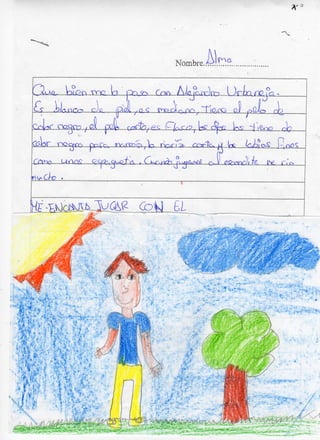 Nombre. Alma
Que bien me lo paso con Alejandro Urbaneja.
Es blanco de piel, es mediano, Tiene el pelo de
color negro, el pelo corto, es Flaco, los ojos los tiene de
color negro para marrón, la nariz corta y los labios finos
como unos espaguetis. Cuando jugamos al escondite me río
mucho.
ME ENCANTA JUGAR CON EL